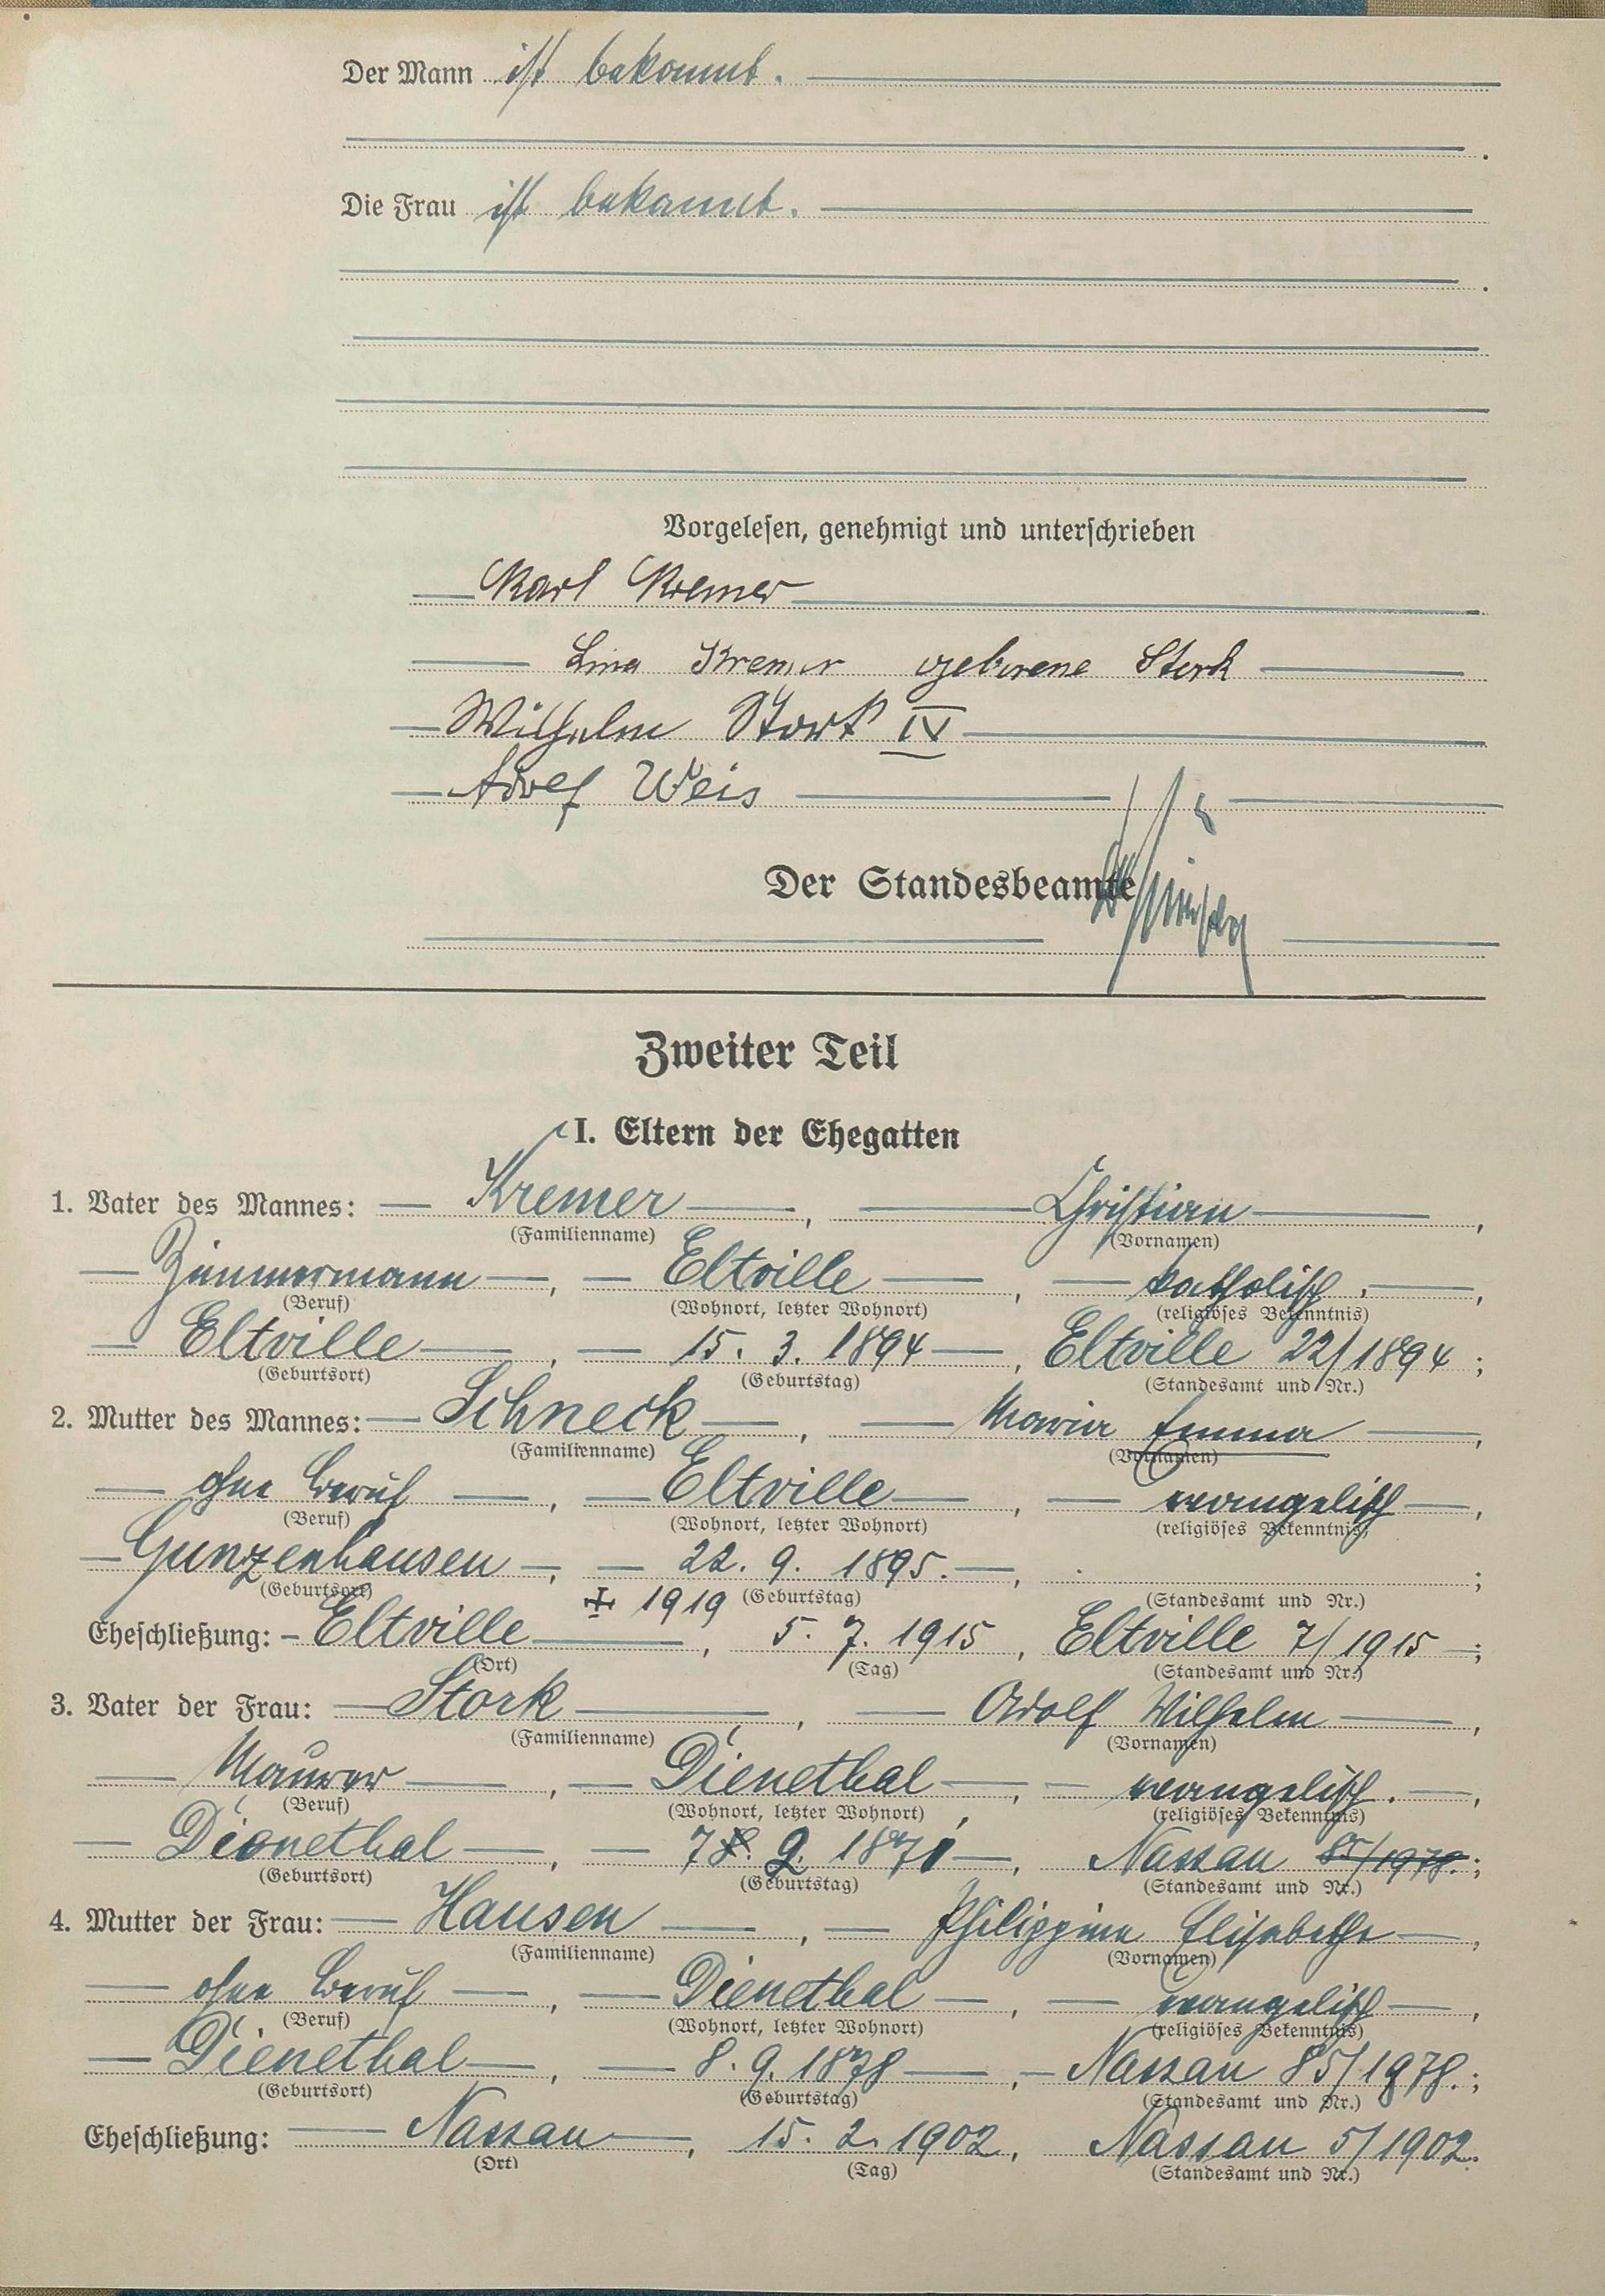 Der Mann ist bekannt.
Die Frau ist bekannt.
Vorgelesen, genehmigt und unterschrieben
Karl Kremer
Lina Kremer geborene Stork
Wilhelm Stork IV
Adolf Weis
Der Standesbeamte
Zweiter Teil
I. Eltern der Ehegatten
1. Vater des Mannes: Kremer, Christian,
(Familienname) (Vornamen)
Zimmermann, Eltville, katholisch,
(Beruf) (Wohnort, letzter Wohnort) (religiöses Bekenntnis)
Eltville, 15. 3. 1894, Eltville 22/1894;
(Geburtsort) (Geburtstag) (Standesamt und Nr.)
2. Mutter des Mannes: Schneck, Maria Emma,
(Familienname) (Vornamen)
ohne Beruf, Eltville, evangelisch,
(Beruf) (Wohnort, letzter Wohnort) (religiöses Bekenntnis)
Gunzenhausen, 22. 9. 1895.,;
(Geburtsort) + 1919 (Geburtstag) (Standesamt und Nr.)
Eheschließung: Eltville, 5. 7. 1915, Eltville 7/1915;
(Ort) (Tag) (Standesamt und Nr.)
3. Vater der Frau: Stork, Adolf Wilhelm,
(Familienname) (Vornamen)
Maurer, Dienethal, evangelisch.,
(Beruf) (Wohnort, letzter Wohnort) (religiöses Bekenntnis)
Dienethal, 7. 9. 1871, Nassau 85/1978.;
(Geburtsort) (Geburtstag) (Standesamt und Nr.)
4. Mutter der Frau: Hausen, Philippine Elisabethe,
(Familienname) (Vornamen)
ohne Beruf, Dienethal, evangelisch,
(Beruf) (Wohnort, letzter Wohnort) (religiöses Bekenntnis)
Dienethal, 8. 9. 1878, Nassau 85/1978.;
(Geburtsort) (Geburtstag) (Standesamt und Nr.)
Eheschließung: Nassau, 15. 2. 1902, Nassau 5/1902.
(Ort) (Tag) (Standesamt und Nr.)